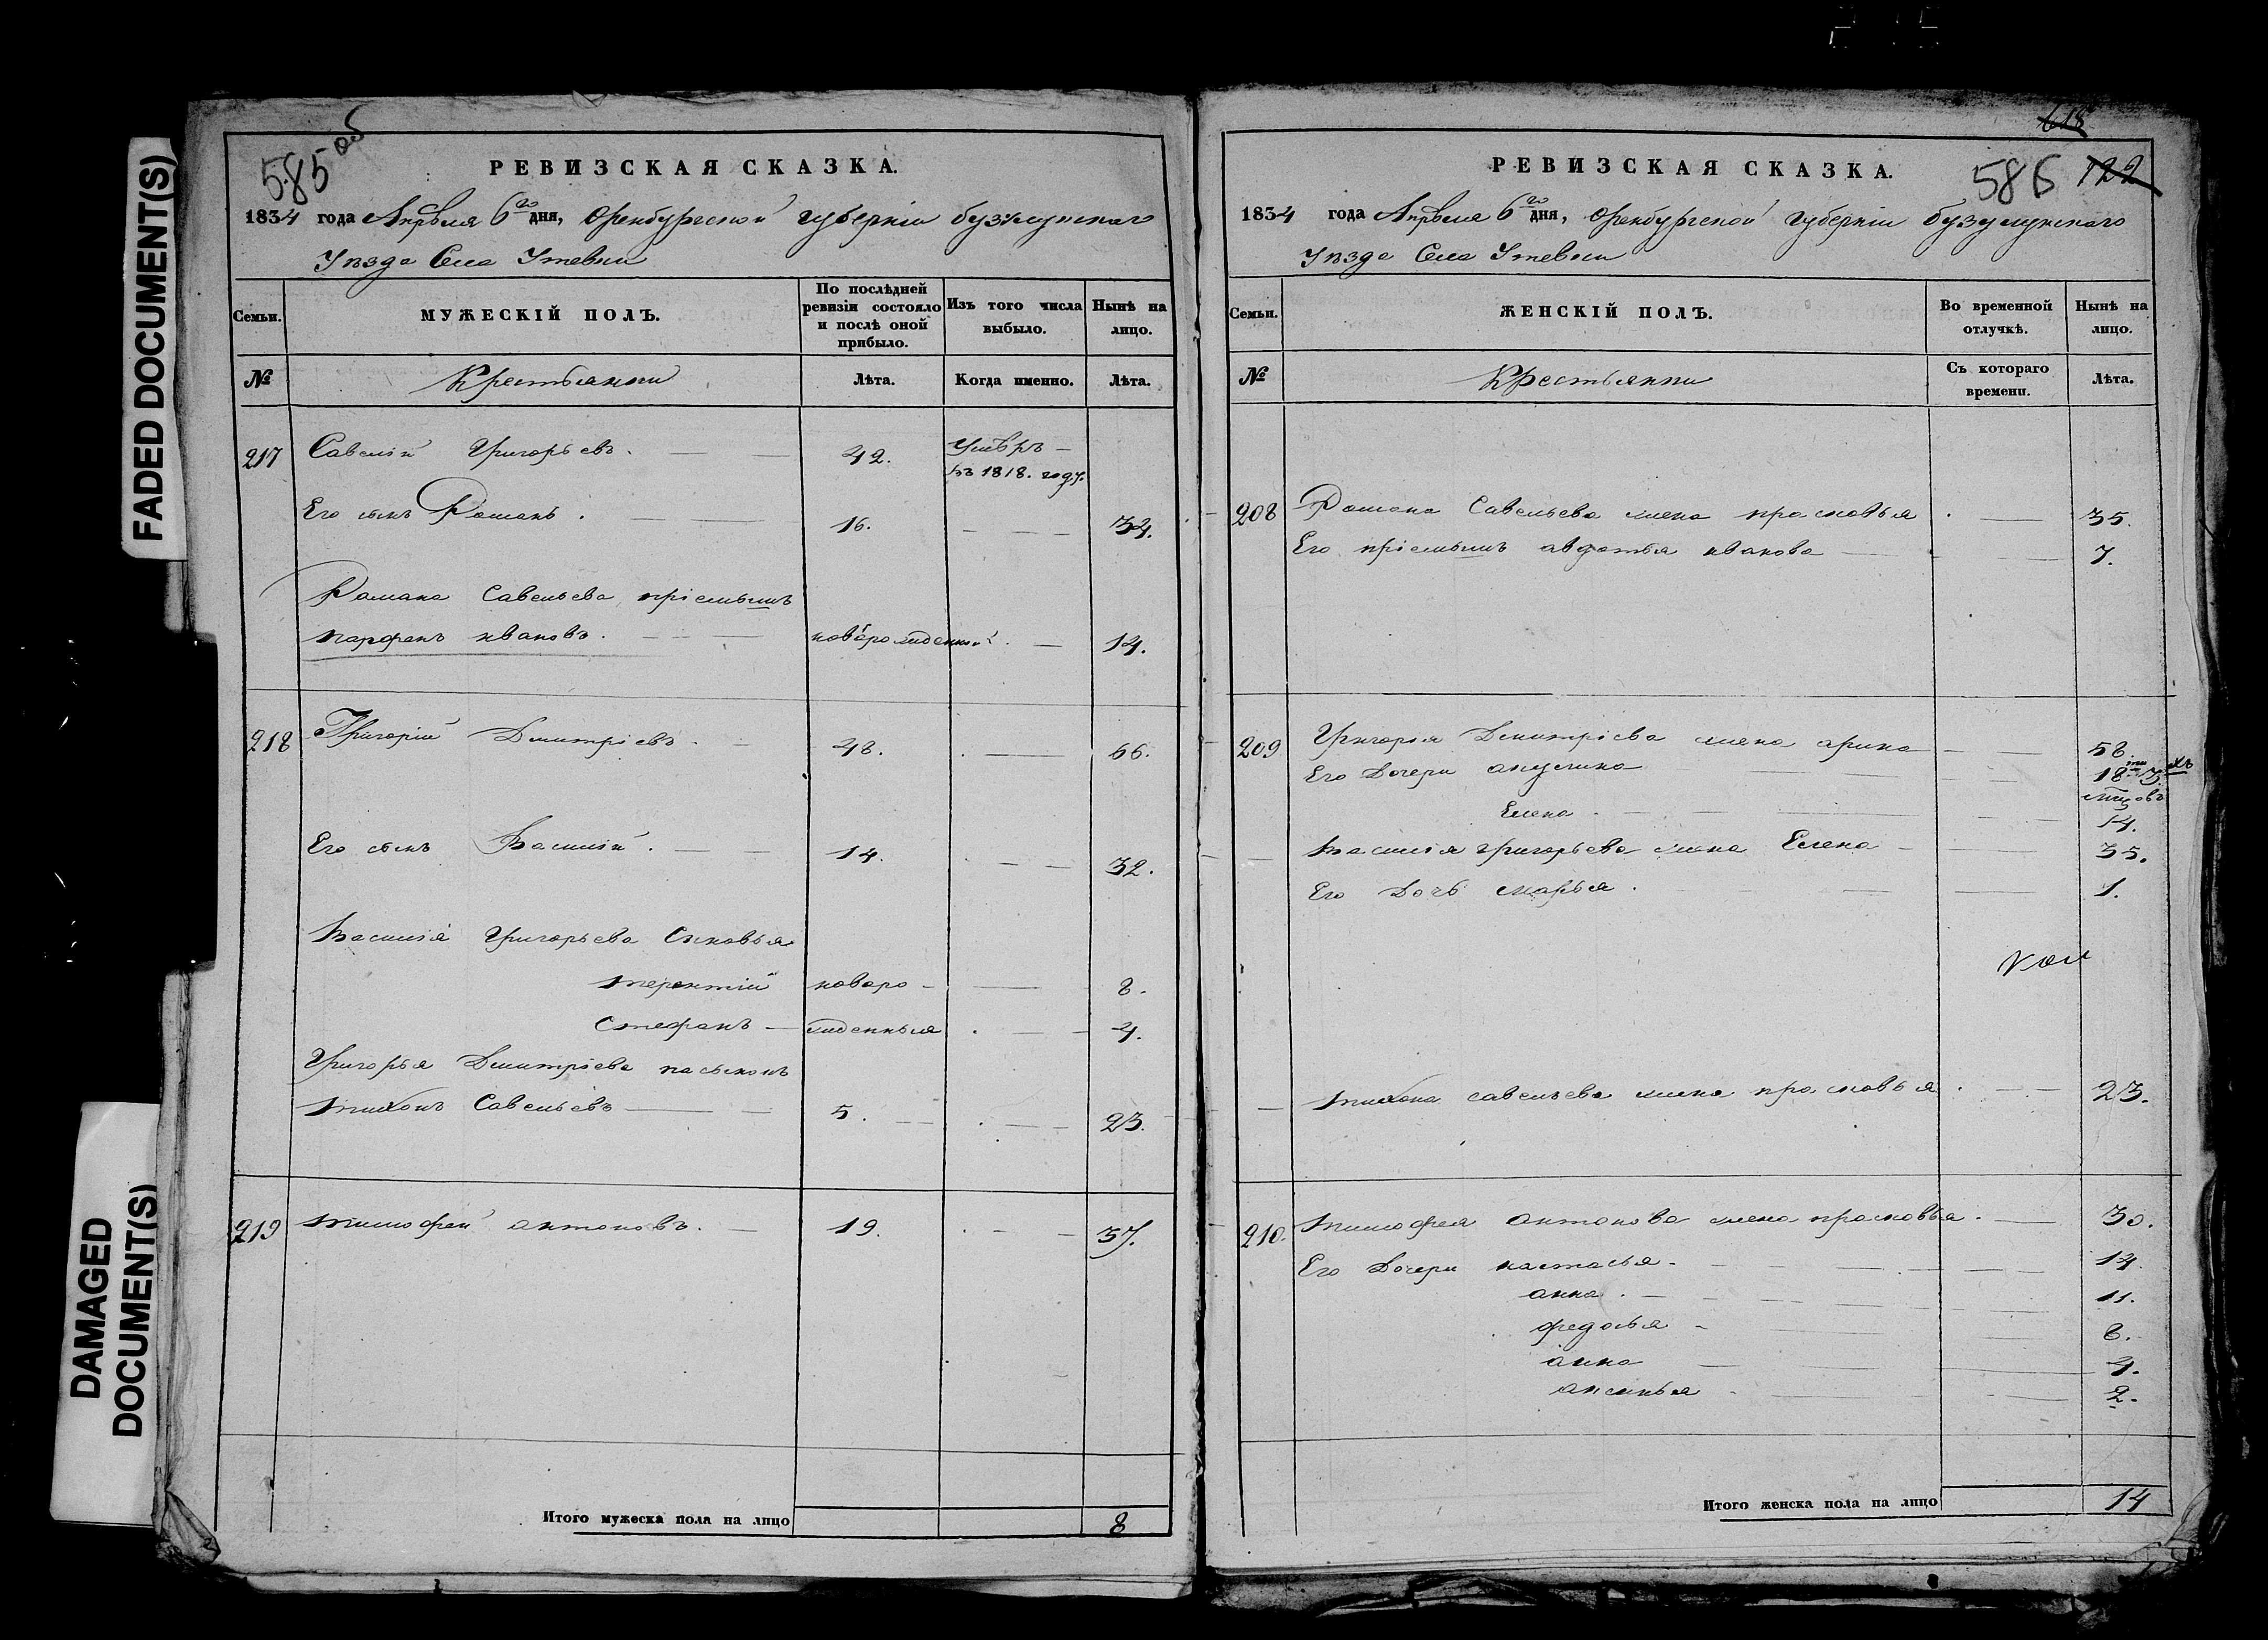 FADED DOCUMENT(S)
DAMAGED
DOCUMENT(S)
585 об
РЕВИЗСКАЯ СКАЗКА.
1834 года Апрѣля 6го дня, Оренбургской губерніи бузулукскаго
Уѣзда Села Утевки
Семьи.
МУЖЕСКІЙ ПОЛЪ.
По послѣдней ревизіи состояло и послѣ оной прибыло.
Изъ того числа выбыло.
Нынѣ на лицо.
№
Крестьянъи
Лѣта.
Когда именно.
Лѣта.
217 Савелій Григорьевъ. 42. Умѣръ
въ 1818. году.
Его сынъ Романъ. 16. 34.
Романа Савельева пріемышъ
парфенъ ивановъ. новорожденной. 14.
218 Григорій Дмитріевъ. 48. 66.
Его сынъ Василій. 14. 32.
Василія Григорьева Сыновья
терентій новоро- 8.
Стефанъ жденныя 4.
Григорья Дмитріева пасынокъ
тихонъ Савельевъ 5. 23.
219 тимофей антоновъ. 19. 37.
Итого мужеска пола на лицо 8
618
586 122
РЕВИЗСКАЯ СКАЗКА.
1834 года Апрѣля 6го дня, Оренбургской губерніи бузулукскаго
Уѣзда Села Утевки
Семьи.
ЖЕНСКІЙ ПОЛЪ.
Во временной отлучкѣ.
Нынѣ на лицо.
№
Крестьянки
Съ котораго времени.
Лѣта.
208 Романа Савельева жена прасковья 35.
Его пріемышъ авдотья иванова 7.
209 Григорія Дмитріева жена арина 58.
Его Дочери акулина 18ти 3хъ
мѣцовъ
Елена. 14.
Василія григорьева жена Елена 35.
Его Дочь марья. 1.
тихона савельева жена прасковья. 23.
210. тимофея антонова жена прасковья. 30.
Его Дочери настасья. 14.
анна. 11.
федосья 8.
анна 4.
аксинья 2.
Итого женска пола на лицо 14